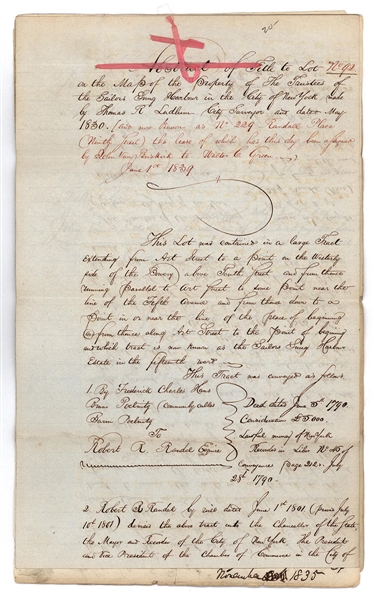 25
Abstract of Title to Lot No 94
on the Map of the Property of The Trustees of
the Sailors Snug Harbour in the City of New York made
by Thomas R Ludlum City Surveyor and dated May
1830. (and now known as No 229 Randall Place
(Ninth Street) the lease of which has this day been assigned
by John Van Buskirk to Walter C. Green
June 1st 1839
This Lot was contained in a large Tract
Extending from Art Street to a Point on the Westerly
side of the Bowery above Tenth Street and from thence
running Parallel to Art Street to some Point near the
line of the Fifth Avenue and from thence down to a
Point in or near the line of the place of beginning
from thence along Art Street to the Point of beginning
which tract is now known as the Sailors Snug Harbour
Estate in the fifteenth ward
This Tract was conveyed as follows
1. By Frederick Charles Hans
Bruno Poelnitz (commonly called
Baron Poelnitz
To
Robert R. Randal Esquire
Deed dated June 5th 1790.
Consideration £5000
Lawful money of New York
Recorded in Liber No 46 of
Conveyances (page 212) July
28th 1790.
2. Robert R Randal by will dated June 1st 1801 (proved July
10th 1801) devises the above tract unto the Chancellor of the State
the Mayor and Recorder of the City of New York The President
and Vice President of the Chamber of Commerce in the City of
November 1835